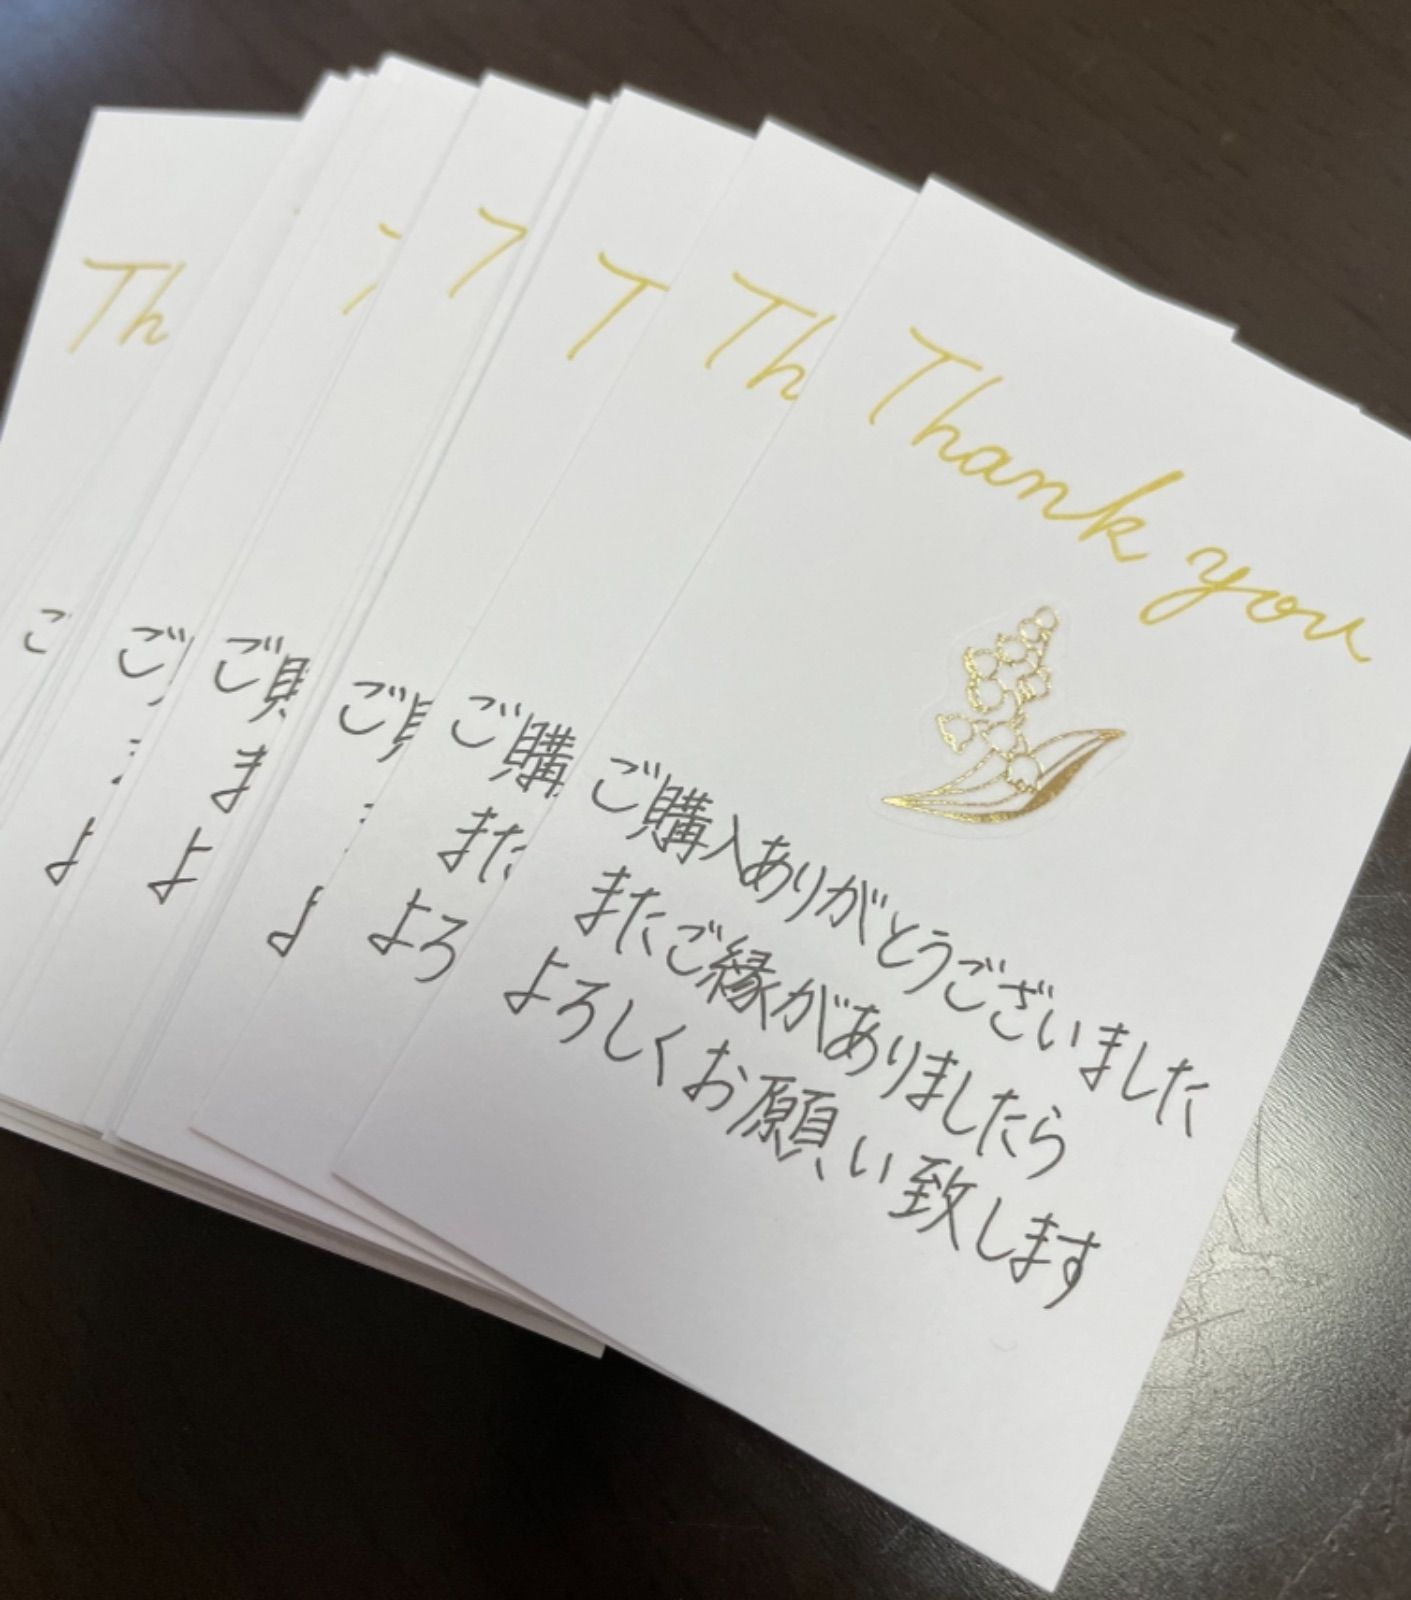 Thank you
ご購入ありがとうございました
またご縁がありましたら
よろしくお願い致します
Th
ご購
また
よろ
T
ご
よ
T
ご
ま
よ
T
ご
よ
Th
こ